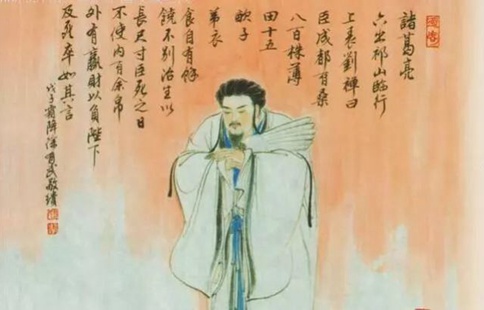 諸葛亮
六出祁山臨行
上表劉禪曰
臣成都有桑
八百株薄
田十五
子
弟衣
食自有餘
饒不別治生以
長尺寸臣死之日
不使內有余帛
外有贏財以負陛下
及死卒如其言
戊子霜降